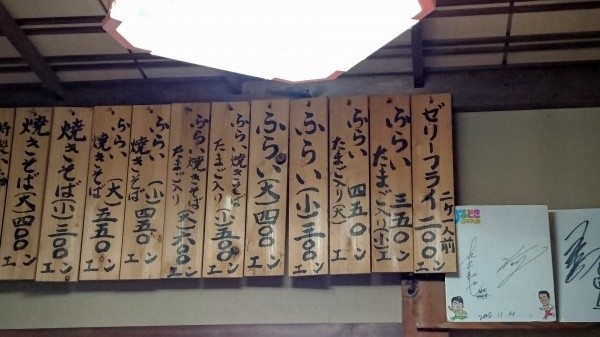 ゼリーフライ 二ケ一人前
二〇〇エン
ふらい
たまご入り(小)
三五〇エン
ふらい
たまご入り(大)
四五〇エン
ふらい(小)三〇〇エン
ふらい(大)四〇〇エン
ふらい焼きそば
たまご入り
五〇〇エン
ふらい焼きそば
たまご入り
(大)六〇〇エン
ふらい
焼きそば
(小)四五〇エン
ふらい
焼きそば
(大)五五〇エン
焼きそば(小)三〇〇エン
焼きそば(大)四〇〇エン